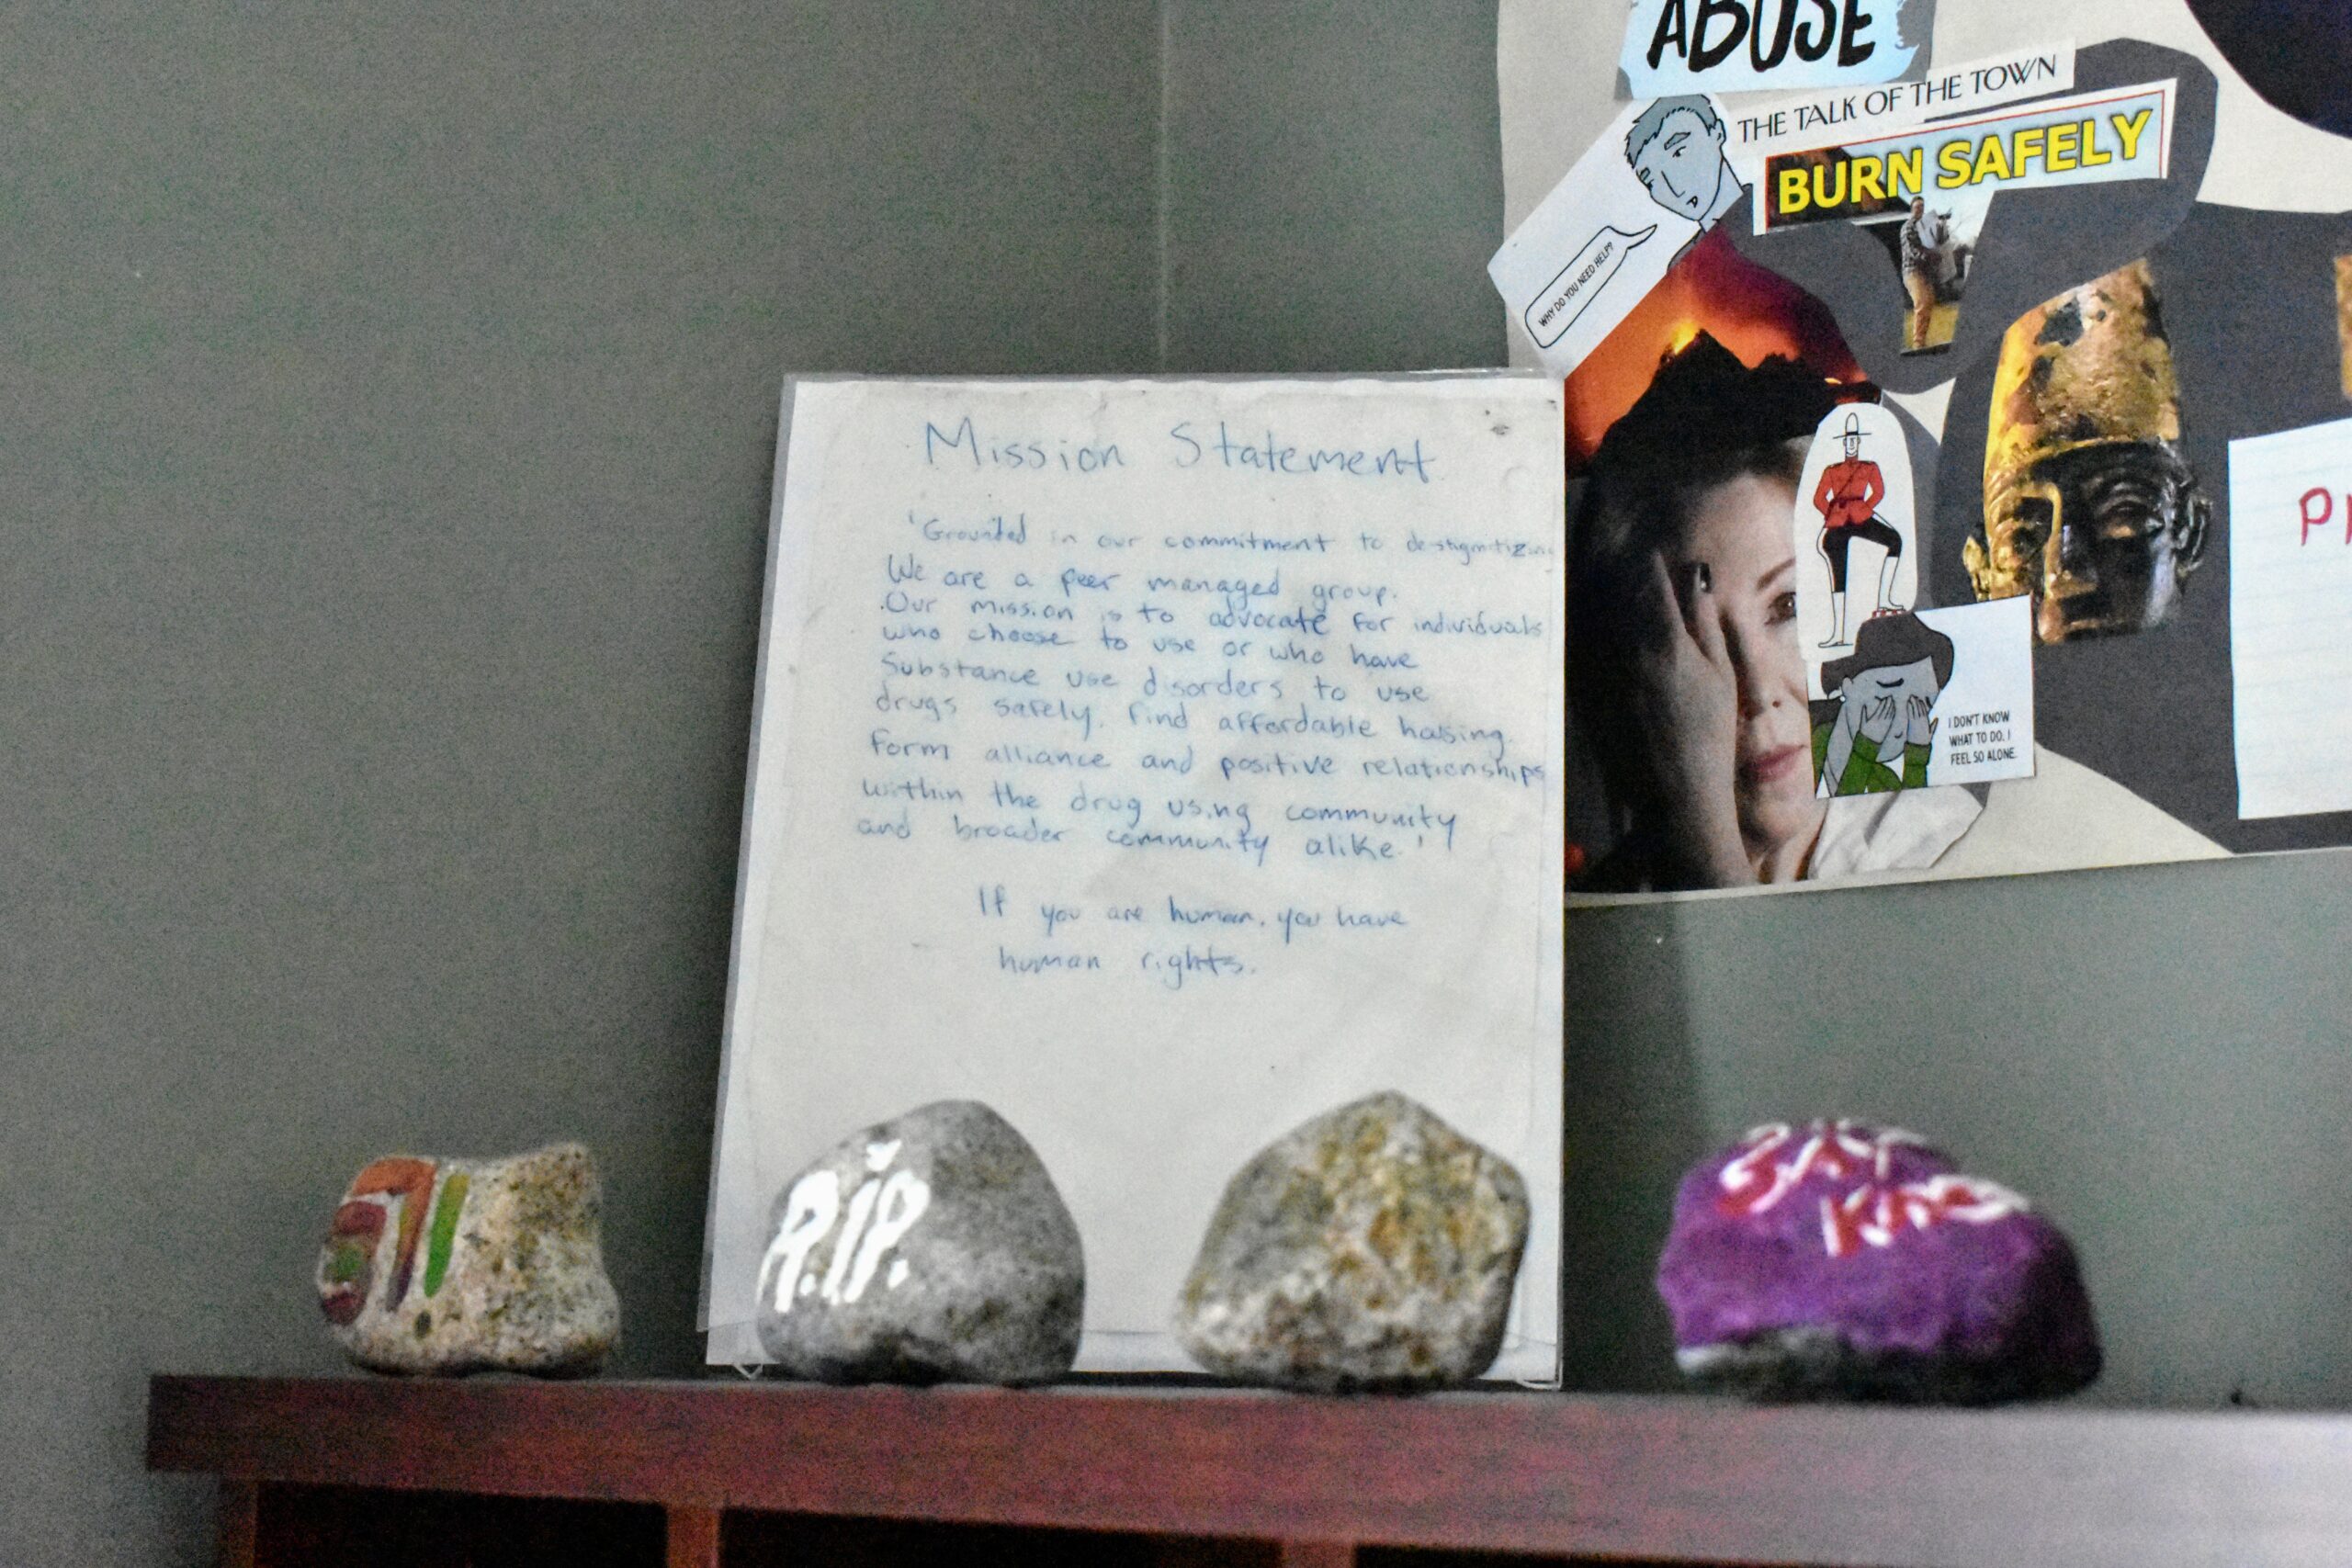 ABUSE
THE TALK OF THE TOWN
BURN SAFELY
WHY DO YOU NEED HELP?
Mission Statement
'Grounded in our commitment to destigmitizing
We are a peer managed group.
Our mission is to advocate for individuals
who choose to use or who have
Substance use disorders to use
drugs safely. find affordable hosing.
form alliance and positive relationships
within the drug using community
and broader community alike.'
If you are human, you have
human rights.
I DON'T KNOW
WHAT TO DO. I
FEEL SO ALONE.
R.I.P.